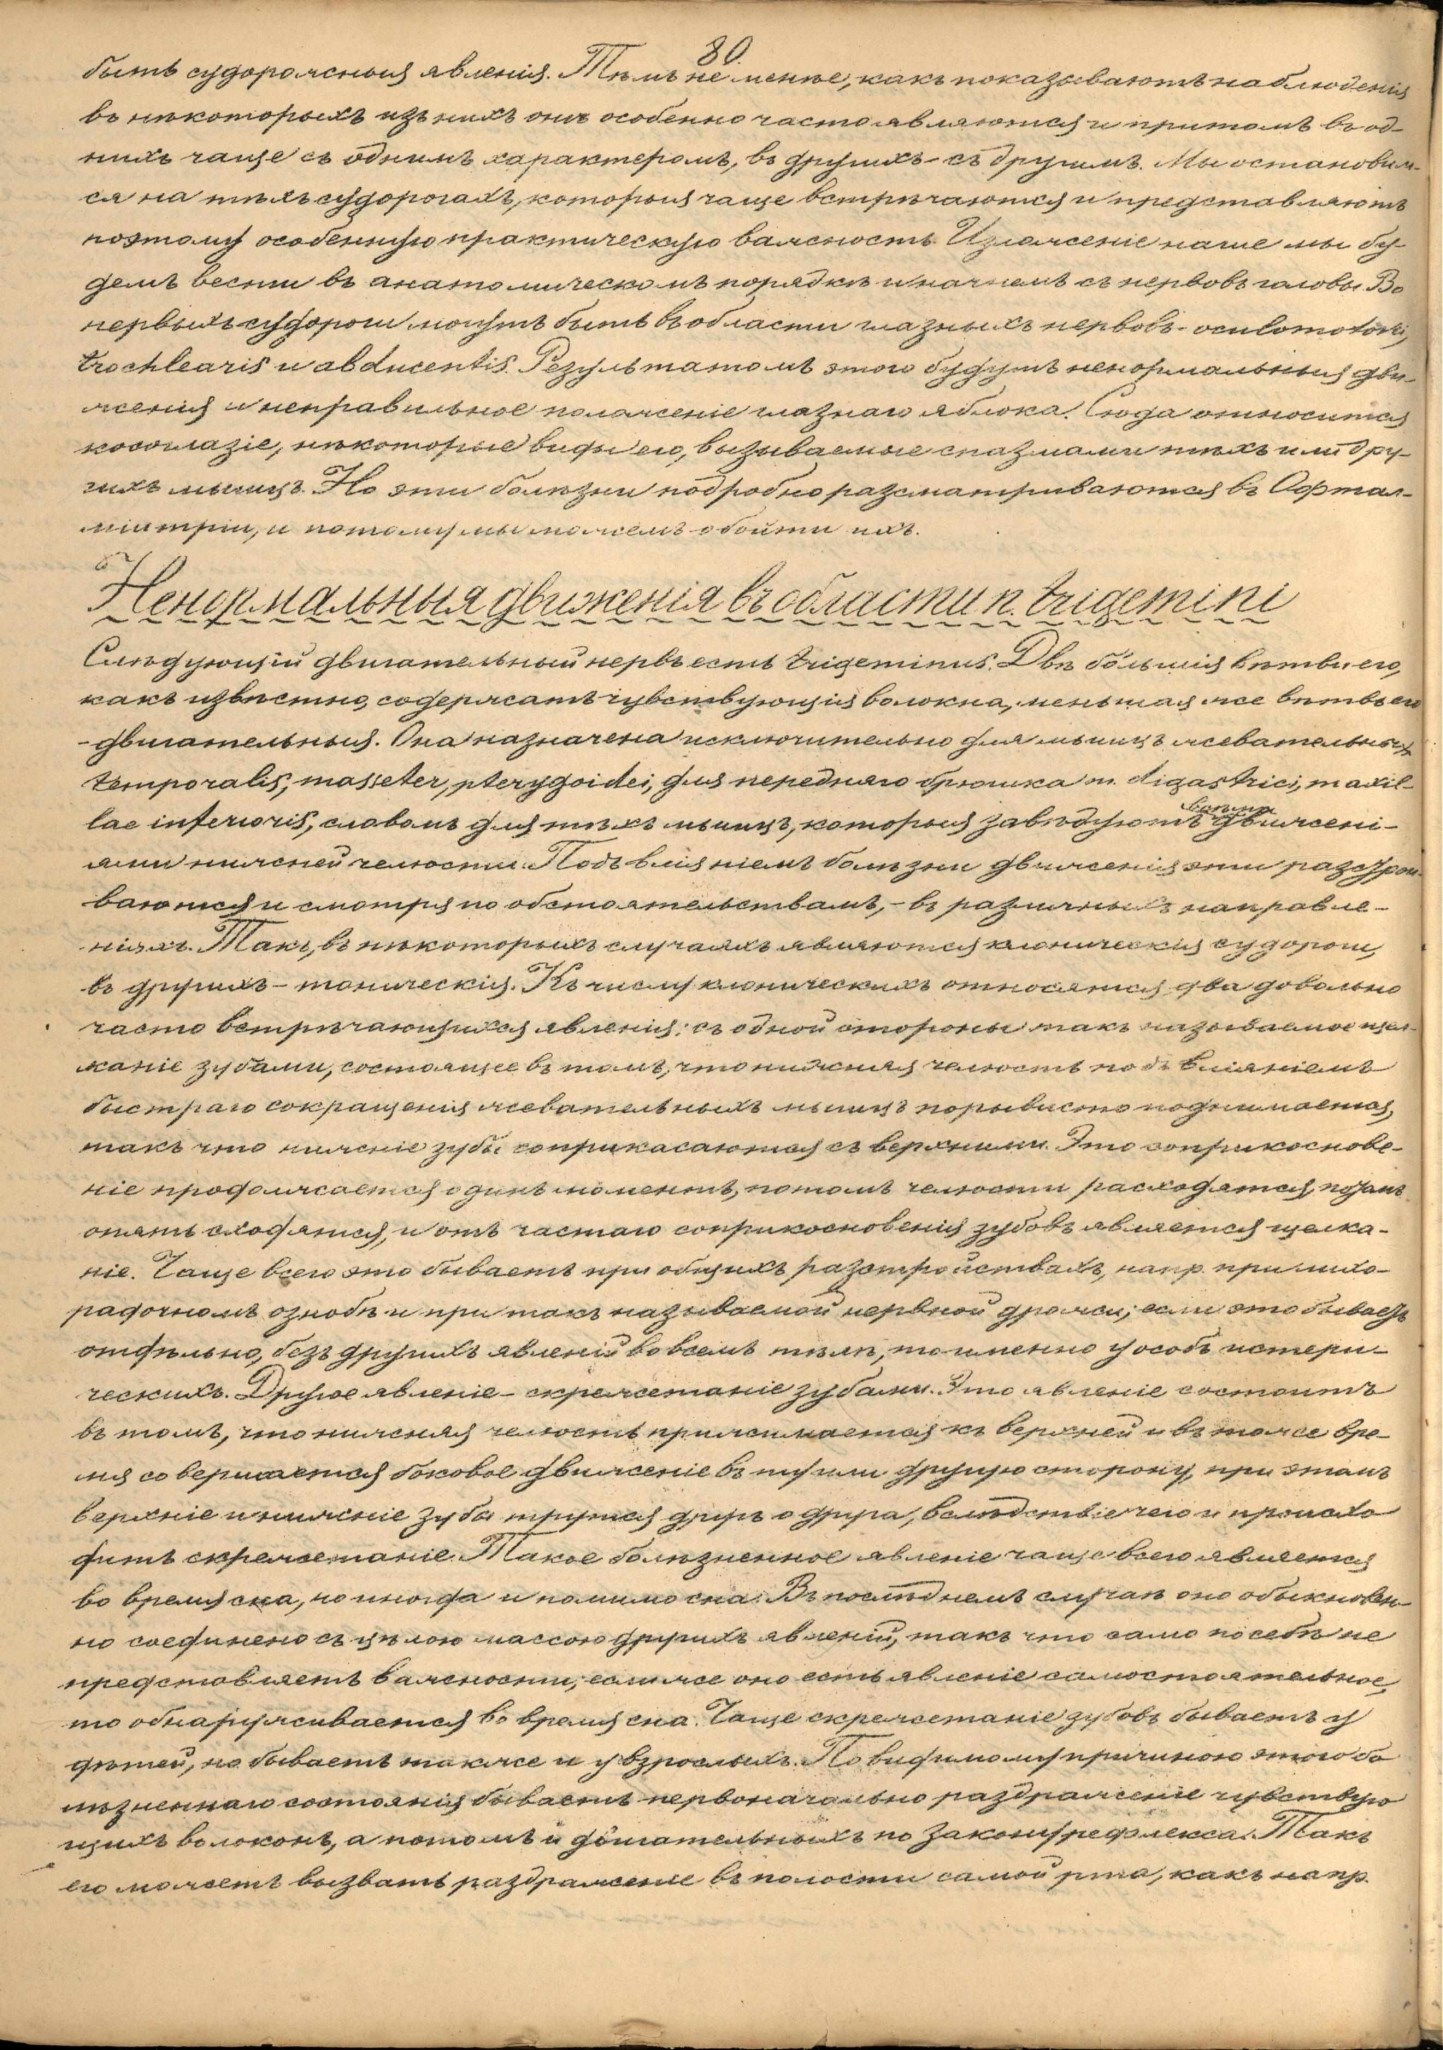 80
быть судорожныя явленія. Тѣмъ не менѣе, какъ показываютъ наблюденія
въ нѣкоторыхъ изъ нихъ онѣ особенно часто являются и притомъ въ од-
нихъ чаще съ однимъ характеромъ, въ другихъ - съ другимъ. Мы остановим-
ся на тѣхъ судорогахъ, которыя чаще встрѣчаются и представляютъ
поэтому особенную практическую важность. Изложеніе наше мы бу-
демъ вести въ анатомическомъ порядкѣ и начнемъ съ нервовъ головы. Во
первыхъ судороги могутъ быть въ области глазныхъ нервовъ - oculomotorii,
trochlearis и abducentis. Результатомъ этого будутъ ненормальныя дви-
женія и неправильное положеніе глазнаго яблока. Сюда относится
косоглазіе, нѣкоторые виды его, вызываемые спазмами тѣхъ или дру-
гихъ мышцъ. Но эти болѣзни подробно разсматриваются въ Офтал-
міатріи, и потому мы можемъ обойти ихъ.
Ненормальныя движенія въ области n. trigemini
Слѣдующій двигательный нервъ есть trigeminus. Двѣ большія вѣтви его,
какъ извѣстно, содержатъ чувствующія волокна, меньшая же вѣтвь его
- двигательныя. Она назначена исключительно для мышцъ жевательныхъ
temporalis, masseter, pterygoidei, для передняго брюшка m. digastrici, maxil-
lae inferioris, словомъ для тѣхъ мышцъ, которыя завѣдуютъ движені-
ями нижней челюсти. Подъ вліяніемъ болѣзни движенія эти разстрои-
ваются и смотря по обстоятельствамъ, - въ различныхъ направле-
ніяхъ. Такъ, въ нѣкоторыхъ случаяхъ являются клоническія судороги,
въ другихъ - тоническія. Къ числу клоническихъ относятся два довольно
часто встрѣчающихся явленія: съ одной стороны такъ называемое щел-
каніе зубами, состоящее въ томъ, что нижняя челюсть подъ вліяніемъ
быстраго сокращенія жевательныхъ мышцъ порывисто поднимается,
такъ что нижніе зубы соприкасаются съ верхними. Это соприкоснове-
ніе продолжается одинъ моментъ, потомъ челюсти расходятся, позатѣмъ
опять сходятся, и отъ частаго соприкосновенія зубовъ является щелка-
ніе. Чаще всего это бываетъ при общихъ разстройствахъ, напр. при лихо-
радочномъ ознобѣ и при такъ называемой нервной дрожи; если это бываетъ
отдѣльно, безъ другихъ явленій во всемъ тѣлѣ, то именно у особъ истери-
ческихъ. Другое явленіе - скрежетаніе зубами. Это явленіе состоитъ
въ томъ, что нижняя челюсть прижимается къ верхней и въ тоже вре-
мя совершается боковое движеніе въ ту или другую сторону, при этомъ
верхніе и нижніе зубы трутся другъ о друга, вслѣдствіе чего и происхо
дитъ скрежетаніе. Такое болѣзненное явленіе чаще всего является
во время сна, но иногда и помимо сна. Въ послѣднемъ случаѣ оно обыкновен-
но соединено съ цѣлою массою другихъ явленій, такъ что само по себѣ не
представляетъ важности; если же оно есть явленіе самостоятельное,
то обнаруживается во время сна. Чаще скрежетаніе зубовъ бываетъ у
дѣтей, но бываетъ также и у взрослыхъ. Повидимому причиною этого бо
лѣзненнаго состоянія бываетъ первоначально раздраженіе чувствую
щихъ волоконъ, а потомъ и двигательныхъ по закону рефлекса. Такъ
его можетъ вызвать раздраженіе въ полости самой рта, какъ напр.